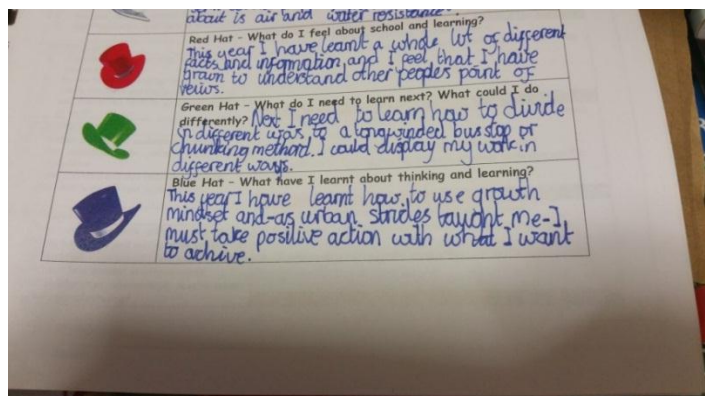 about is air and water resistance.
Red Hat - What do I feel about school and learning?
This year I have learnt a whole lot of different
facts and information and I feel that I have
grown to understand other peoples point of
veiws.
Green Hat - What do I need to learn next? What could I do
differently? Next I need to learn how to divide
in different ways to a longwinded bus stop or
chunking method. I could display my work in
different ways.
Blue Hat - What have I learnt about thinking and learning?
This year I have learnt how to use growth
mindset and-as urban strides taught me-I
must take positive action with what I want
to achive.